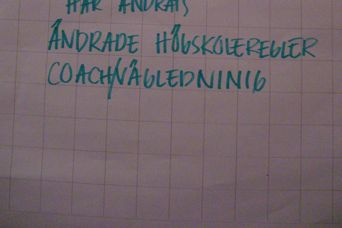 HAR ÄNDRATS
ÄNDRADE HÖGSKOLEREGLER
COACH/VÄGLEDNINIG